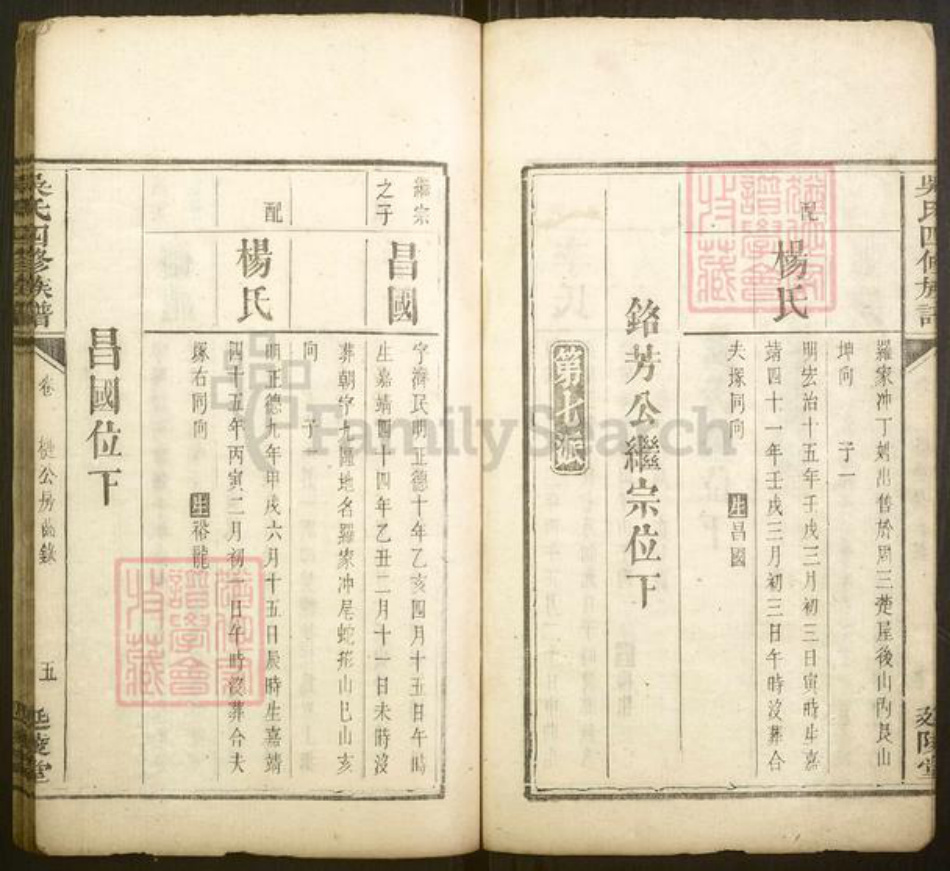 吳氏四修族譜
延陵堂
羅家冲丁剡出售於周三楚屋後山丙艮山
坤向 子一
配
楊氏
明宏治十五年壬戌三月初三日寅時生嘉
靖四十一年壬戌三月初三日午時沒葬合
夫塚同向 生昌國
銘芳公繼宗位下
第七派
繼宗
之子
昌國
字濟民明正德十年乙亥四月十五日午時
生嘉靖四十四年乙丑二月十一日未時沒
葬朝字九區地名羅家冲尾蛇形山巳山亥
向 子一
配
楊氏
明正德九年甲戌六月十五日辰時生嘉靖
四十五年丙寅二月初一日午時沒葬合夫
塚右同向 生裕龍
昌國位下
吳氏四修族譜
卷
公房齒錄
五
延陵堂
譜學會
收藏
譜學會
收藏
FamilySearch